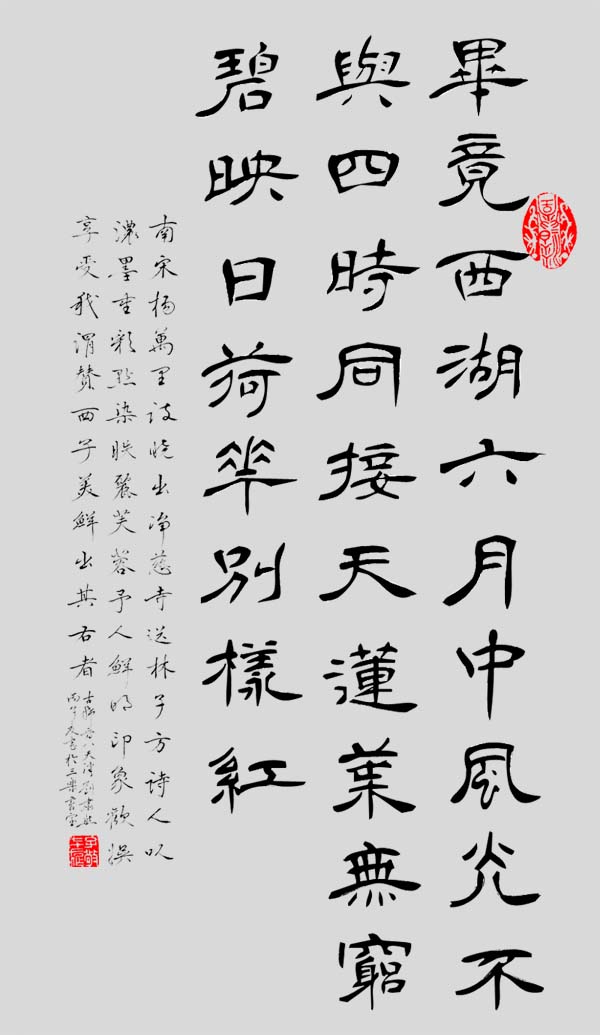 畢竟西湖六月中風光不
與四時同接天蓮葉無窮
碧映日荷花別樣紅
南宋楊萬里詩曉出淨慈寺送林子方詩人以
濃墨重彩點染映麗芙蓉予人鮮明印象歡娛
享受我謂贊西子美鮮出其右者